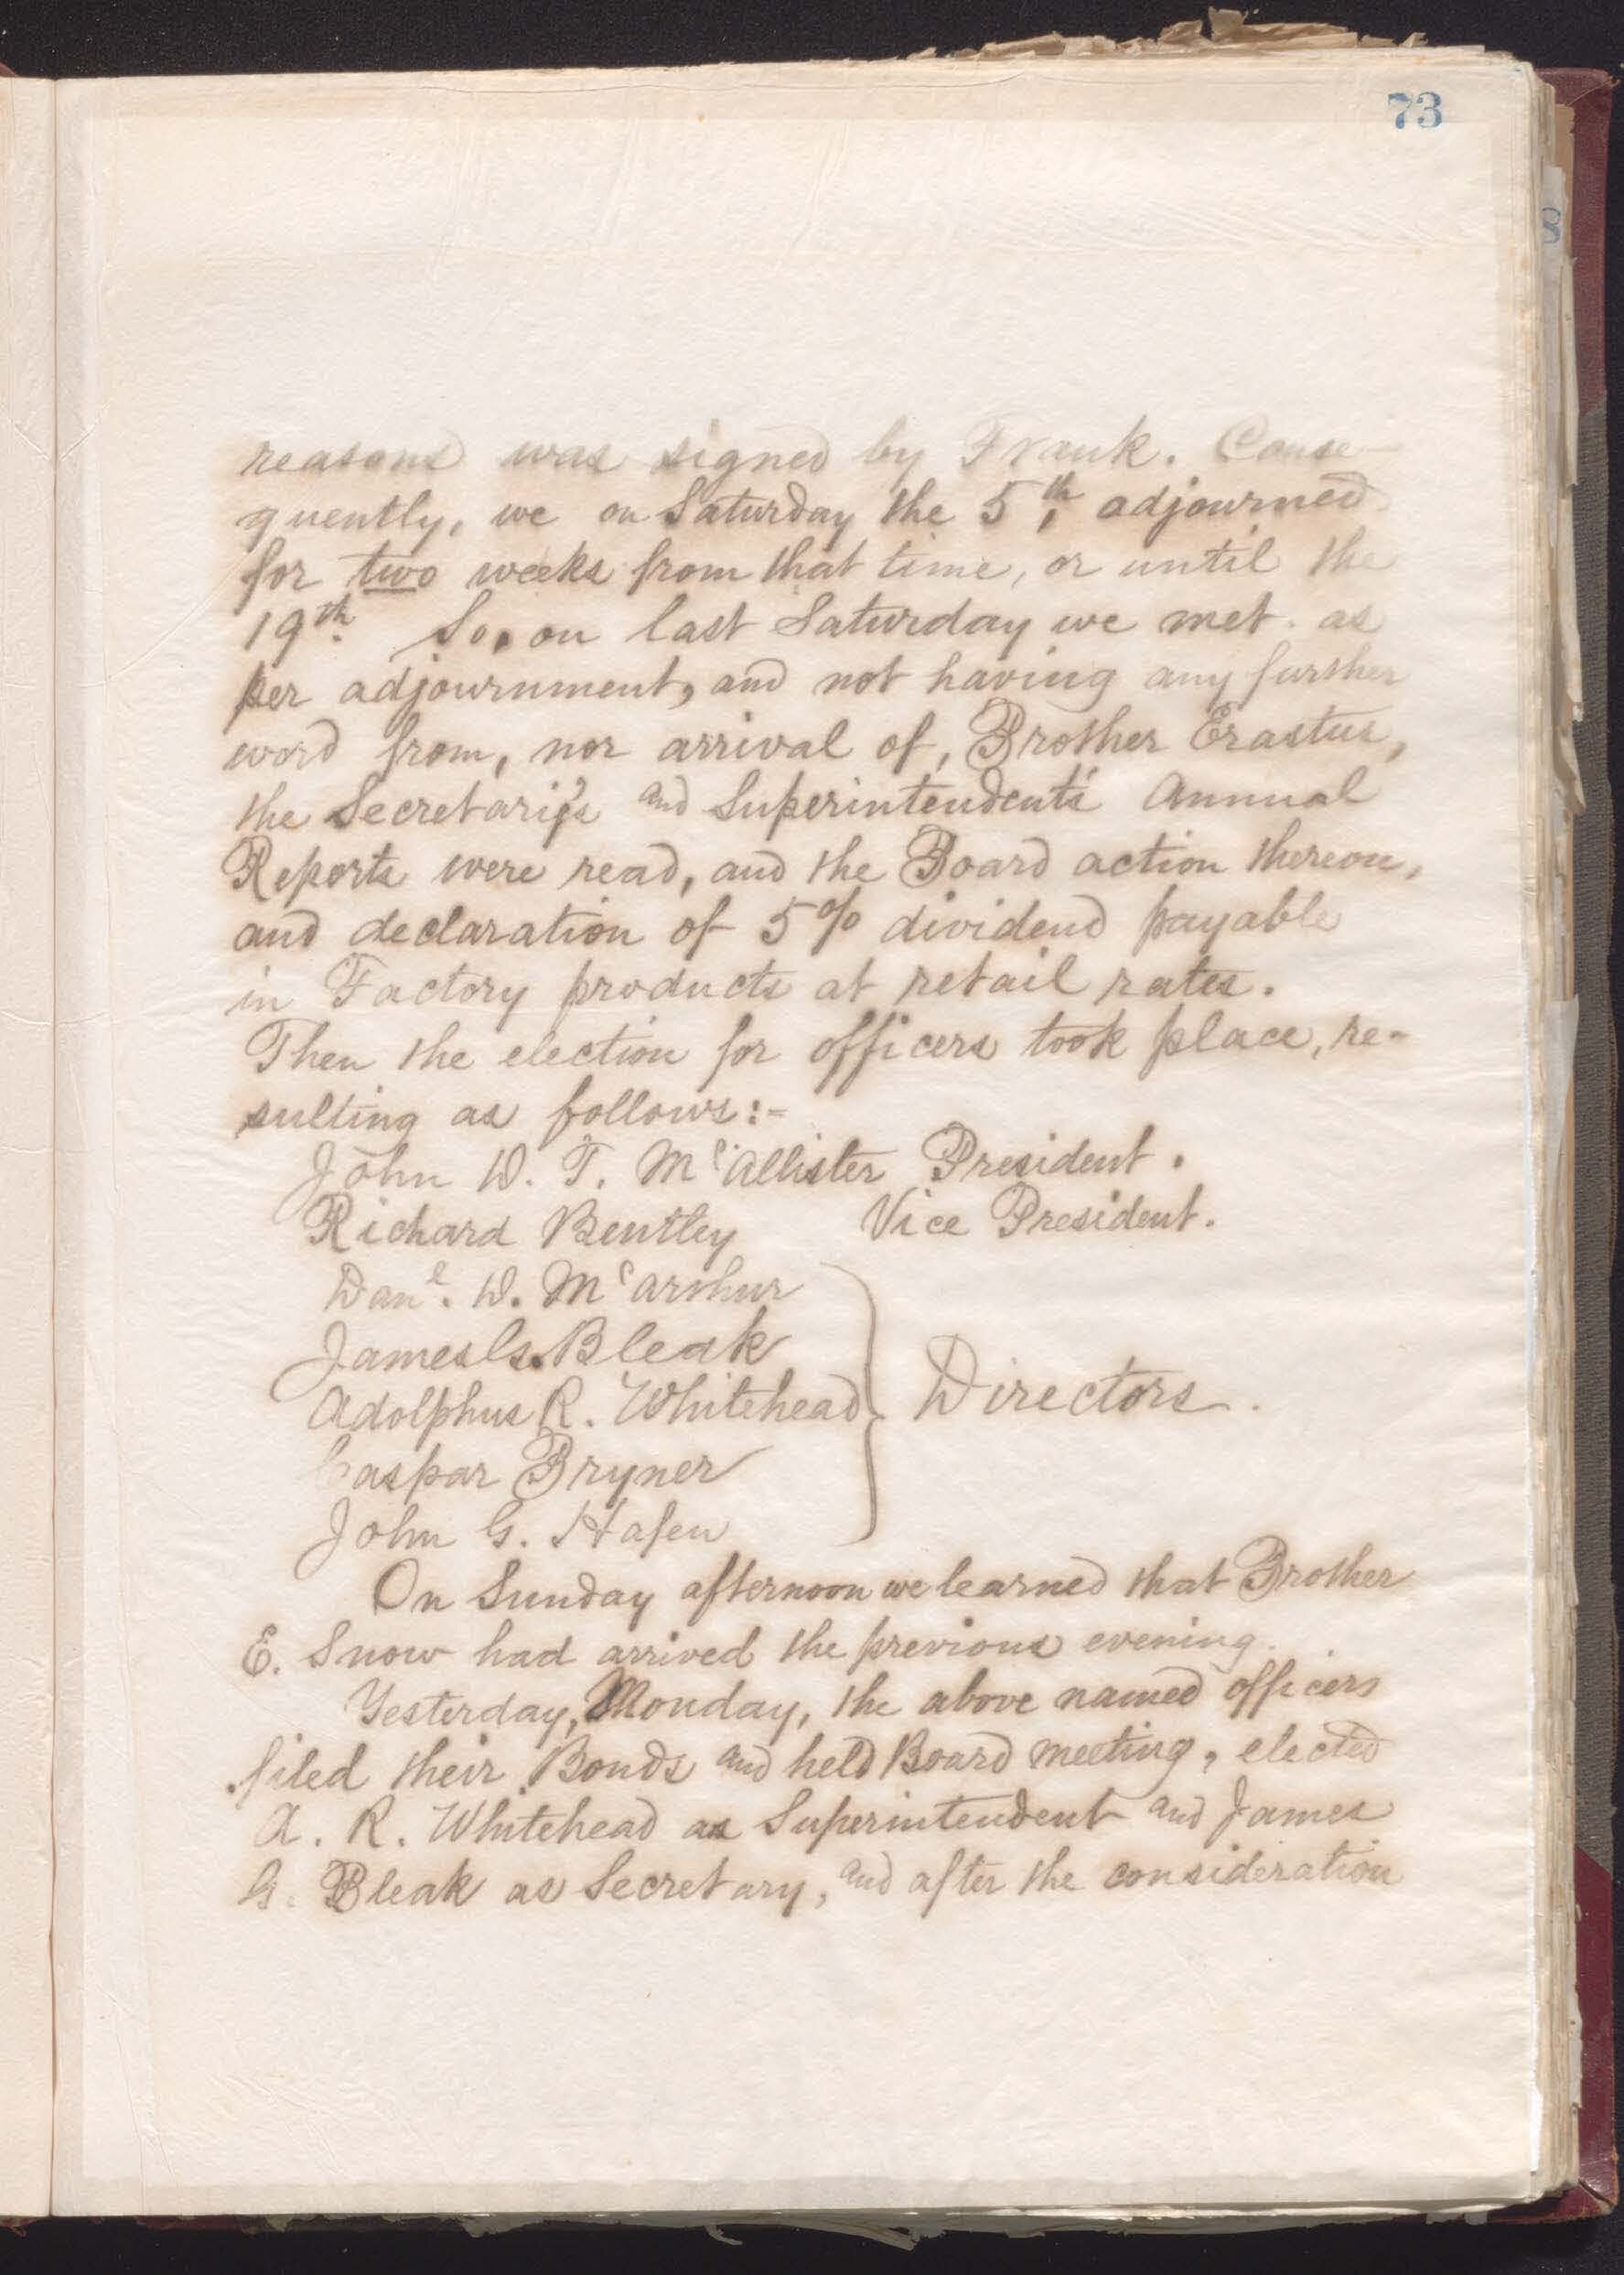 73
reasons was signed by Frank. Conse-
quently, we on Saturday the 5th, adjourned
for two weeks from that time, or until the
19th. So, on last Saturday we met as
per adjournment, and not having any further
word from, nor arrival of, Brother Erastus,
the Secretary's and Superintendent's Annual
Reports were read, and the Board action thereon,
and declaration of 5% dividend payable
in Factory products at retail rates.
Then the election for officers took place, re-
sulting as follows:-
John D. T. McAllister President.
Richard Bentley Vice President.
Danl. D. McArthur
James G. Bleak
Adolphus R. Whitehead } Directors.
Caspar Bryner
John G. Hafen
On Sunday afternoon we learned that Brother
E. Snow had arrived the previous evening.
Yesterday, Monday, the above named officers
filed their Bonds and held Board meeting, elected
A. R. Whitehead as Superintendent and James
G. Bleak as Secretary, and after the consideration